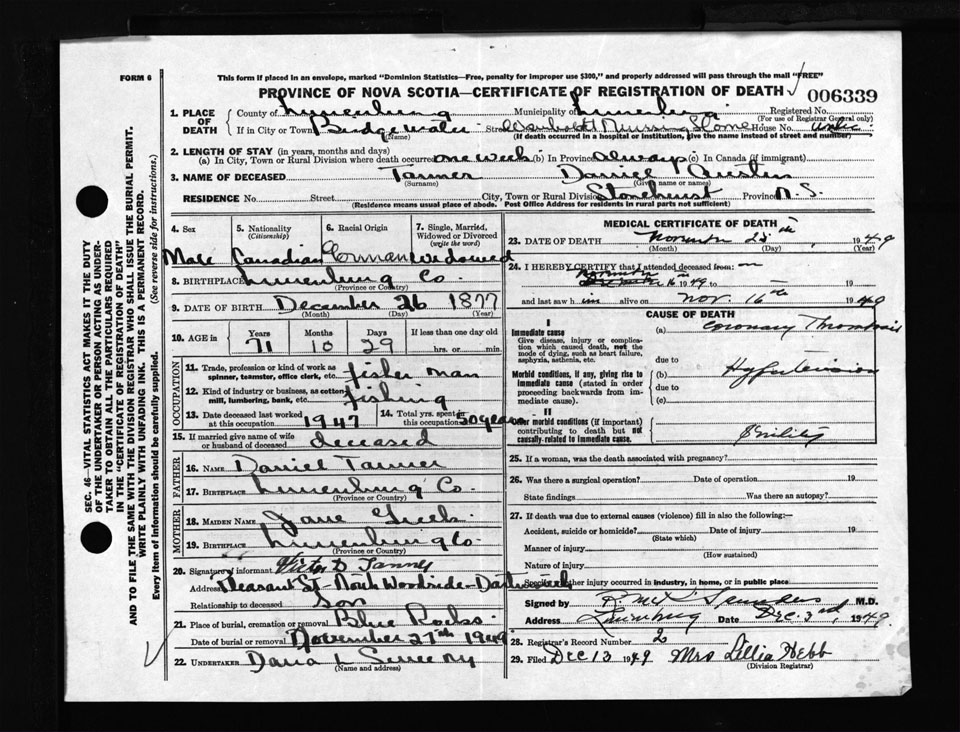 FORM 6
This form if placed in an envelope, marked "Dominion Statistics—Free, penalty for improper use $300," and properly addressed will pass through the mail "FREE"
PROVINCE OF NOVA SCOTIA—CERTIFICATE OF REGISTRATION OF DEATH
006339
1. PLACE OF DEATH County of Lunenburg Municipality of Lunenburg Registered No.
(For use of Registrar General only)
If in City or Town Bridgewater Street Nursing Home House No.
(Name) (If death occurred in a hospital or institution, give the name instead of street and number)
2. LENGTH OF STAY (in years, months and days)
(a) In City, Town or Rural Division where death occurred one week (b) In Province always (c) In Canada (if immigrant)
3. NAME OF DECEASED Tanner Daniel Austin
(Surname) (Given name or names)
RESIDENCE No. Street City, Town or Rural Division Stonehurst Province N.S.
(Residence means usual place of abode. Post Office Address for residents in rural parts not sufficient)
4. Sex 5. Nationality (Citizenship) 6. Racial Origin 7. Single, Married, Widowed or Divorced (write the word)
Male Canadian German widowed
8. BIRTHPLACE Lunenburg Co.
(Province or Country)
9. DATE OF BIRTH December 26 1877
(Month) (Day) (Year)
10. AGE in Years Months Days If less than one day old
71 10 29 hrs. or min.
OCCUPATION
11. Trade, profession or kind of work as spinner, teamster, office clerk, etc. fisherman
12. Kind of industry or business, as cotton mill, lumbering, bank, etc. fishing
13. Date deceased last worked at this occupation 1947 14. Total yrs. spent in this occupation 50 years
15. If married give name of wife or husband of deceased deceased
FATHER
16. NAME Daniel Tanner
17. BIRTHPLACE Lunenburg Co.
(Province or Country)
MOTHER
18. MAIDEN NAME Jane
19. BIRTHPLACE Lunenburg Co.
(Province or Country)
20. Signature of informant Victor D Tanner
Address Pleasant St-North Woodside-Dartmouth
Relationship to deceased son
21. Place of burial, cremation or removal Blue Rocks
Date of burial or removal November 27th 1949
22. UNDERTAKER Dana L Sweeny
(Name and address)
MEDICAL CERTIFICATE OF DEATH
23. DATE OF DEATH November 25th, 1949
(Month) (Day) (Year)
24. I HEREBY CERTIFY that I attended deceased from
November 16 1949
and last saw him alive on Nov. 16th 1949
CAUSE OF DEATH
I
Immediate cause (a) Coronary Thrombosis
Give disease, injury or complication which caused death, not the mode of dying, such as heart failure, asphyxia, asthenia, etc.
due to
Morbid conditions, if any, giving rise to immediate cause (stated in order proceeding backwards from immediate cause). (b) Hypertension
due to
(c)
II
Other morbid conditions (if important) contributing to death but not causally-related to immediate cause. Senility
25. If a woman, was the death associated with pregnancy?
26. Was there a surgical operation? Date of operation 19
State findings Was there an autopsy?
27. If death was due to external causes (violence) fill in also the following:
Accident, suicide or homicide? Date of injury 19
(State which)
Manner of injury
(How sustained)
Nature of injury
Specify whether injury occurred in industry, in home, or in public place
Signed by Saunders M.D.
Address Lunenburg Date Dec. 3rd, 1949
28. Registrar's Record Number
29. Filed Dec 13 1949 Mrs Lillia Hebb
(Division Registrar)
SEC. 46—VITAL STATISTICS ACT MAKES IT THE DUTY
OF THE UNDERTAKER OR PERSON ACTING AS UNDERTAKER
TO OBTAIN ALL THE PARTICULARS REQUIRED
IN THE "CERTIFICATE OF REGISTRATION OF DEATH"
AND TO FILE THE SAME WITH THE DIVISION REGISTRAR WHO SHALL ISSUE THE BURIAL PERMIT.
WRITE PLAINLY WITH UNFADING INK. THIS IS A PERMANENT RECORD.
Every item of information should be carefully supplied. (See reverse side for instructions.)